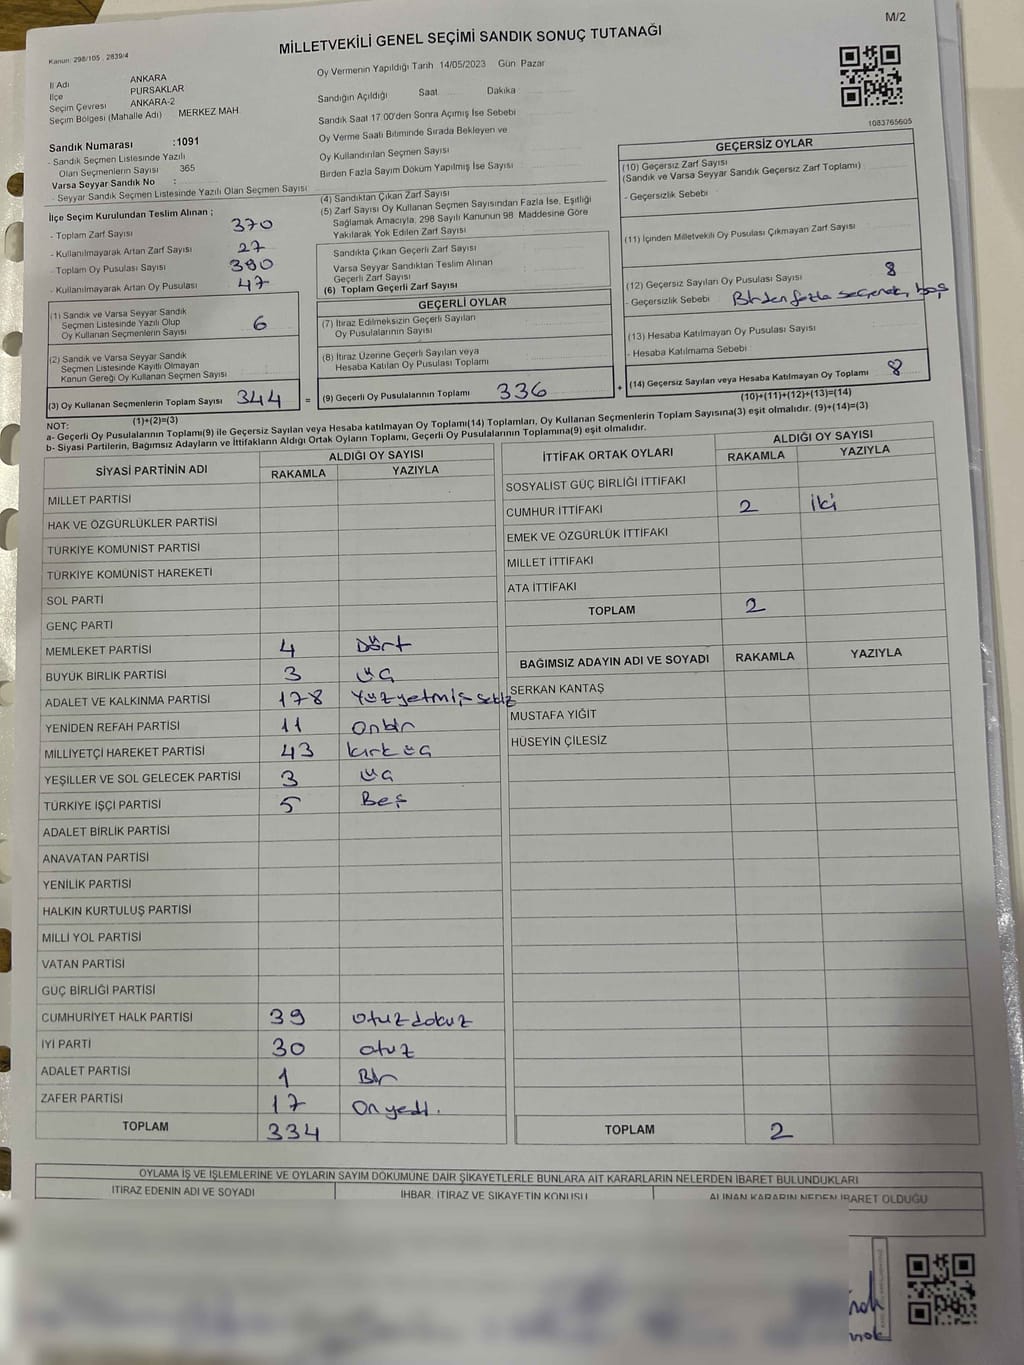 M/2
Kanun: 298/105 , 2839/4
MİLLETVEKİLİ GENEL SEÇİMİ SANDIK SONUÇ TUTANAĞI
İl Adı ANKARA
İlçe PURSAKLAR
Seçim Çevresi ANKARA-2
Seçim Bölgesi (Mahalle Adı) MERKEZ MAH.
Sandık Numarası :1091
- Sandık Seçmen Listesinde Yazılı
Olan Seçmenlerin Sayısı 365
Varsa Seyyar Sandık No :
- Seyyar Sandık Seçmen Listesinde Yazılı Olan Seçmen Sayısı
Oy Vermenin Yapıldığı Tarih 14/05/2023 Gün Pazar
Sandığın Açıldığı Saat Dakika
Sandık Saat 17.00'den Sonra Açılmış İse Sebebi
Oy Verme Saati Bitiminde Sırada Bekleyen ve
Oy Kullandırılan Seçmen Sayısı
Birden Fazla Sayım Döküm Yapılmış İse Sayısı
1083765605
İlçe Seçim Kurulundan Teslim Alınan ;
- Toplam Zarf Sayısı 370
- Kullanılmayarak Artan Zarf Sayısı 27
- Toplam Oy Pusulası Sayısı 390
- Kullanılmayarak Artan Oy Pusulası 47
(1) Sandık ve Varsa Seyyar Sandık
Seçmen Listesinde Yazılı Olup
Oy Kullanan Seçmenlerin Sayısı 6
(2) Sandık ve Varsa Seyyar Sandık
Seçmen Listesinde Kayıtlı Olmayan
Kanun Gereği Oy Kullanan Seçmen Sayısı
(3) Oy Kullanan Seçmenlerin Toplam Sayısı 344
(1)+(2)=(3)
(4) Sandıktan Çıkan Zarf Sayısı
(5) Zarf Sayısı Oy Kullanan Seçmen Sayısından Fazla İse, Eşitliği
Sağlamak Amacıyla, 298 Sayılı Kanunun 98. Maddesine Göre
Yakılarak Yok Edilen Zarf Sayısı
Sandıkta Çıkan Geçerli Zarf Sayısı
Varsa Seyyar Sandıktan Teslim Alınan
Geçerli Zarf Sayısı
(6) Toplam Geçerli Zarf Sayısı
GEÇERLİ OYLAR
(7) İtiraz Edilmeksizin Geçerli Sayılan
Oy Pusulalarının Sayısı
(8) İtiraz Üzerine Geçerli Sayılan veya
Hesaba Katılan Oy Pusulası Toplamı
= (9) Geçerli Oy Pusulalarının Toplamı 336 +
GEÇERSİZ OYLAR
(10) Geçersiz Zarf Sayısı
(Sandık ve Varsa Seyyar Sandık Geçersiz Zarf Toplamı)
- Geçersizlik Sebebi
(11) İçinden Milletvekili Oy Pusulası Çıkmayan Zarf Sayısı
(12) Geçersiz Sayılan Oy Pusulası Sayısı 8
- Geçersizlik Sebebi Birden fazla seçenek, boş
(13) Hesaba Katılmayan Oy Pusulası Sayısı
- Hesaba Katılmama Sebebi
(14) Geçersiz Sayılan veya Hesaba Katılmayan Oy Toplamı 8
(10)+(11)+(12)+(13)=(14)
NOT:
a- Geçerli Oy Pusulalarının Toplamı(9) ile Geçersiz Sayılan veya Hesaba katılmayan Oy Toplamı(14) Toplamları, Oy Kullanan Seçmenlerin Toplam Sayısına(3) eşit olmalıdır. (9)+(14)=(3)
b- Siyasi Partilerin, Bağımsız Adayların ve İttifakların Aldığı Ortak Oyların Toplamı, Geçerli Oy Pusulalarının Toplamına(9) eşit olmalıdır.
SİYASİ PARTİNİN ADI ALDIĞI OY SAYISI
RAKAMLA YAZIYLA
MİLLET PARTİSİ
HAK VE ÖZGÜRLÜKLER PARTİSİ
TÜRKİYE KOMÜNİST PARTİSİ
TÜRKİYE KOMÜNİST HAREKETİ
SOL PARTİ
GENÇ PARTİ
MEMLEKET PARTİSİ 4 Dört
BÜYÜK BİRLİK PARTİSİ 3 üç
ADALET VE KALKINMA PARTİSİ 178 Yüzyetmiş sekiz
YENİDEN REFAH PARTİSİ 11 Onbir
MİLLİYETÇİ HAREKET PARTİSİ 43 kırk üç
YEŞİLLER VE SOL GELECEK PARTİSİ 3 üç
TÜRKİYE İŞÇİ PARTİSİ 5 Beş
ADALET BİRLİK PARTİSİ
ANAVATAN PARTİSİ
YENİLİK PARTİSİ
HALKIN KURTULUŞ PARTİSİ
MİLLİ YOL PARTİSİ
VATAN PARTİSİ
GÜÇ BİRLİĞİ PARTİSİ
CUMHURİYET HALK PARTİSİ 39 otuz dokuz
İYİ PARTİ 30 otuz
ADALET PARTİSİ 1 Bir
ZAFER PARTİSİ 17 On yedi.
TOPLAM 334
İTTİFAK ORTAK OYLARI ALDIĞI OY SAYISI
RAKAMLA YAZIYLA
SOSYALİST GÜÇ BİRLİĞİ İTTİFAKI
CUMHUR İTTİFAKI 2 İki
EMEK VE ÖZGÜRLÜK İTTİFAKI
MİLLET İTTİFAKI
ATA İTTİFAKI
TOPLAM 2
BAĞIMSIZ ADAYIN ADI VE SOYADI RAKAMLA YAZIYLA
SERKAN KANTAŞ
MUSTAFA YİĞİT
HÜSEYİN ÇİLESİZ
TOPLAM 2
OYLAMA İŞ VE İŞLEMLERİNE VE OYLARIN SAYIM DÖKÜMÜNE DAİR ŞİKAYETLERLE BUNLARA AİT KARARLARIN NELERDEN İBARET BULUNDUKLARI
İTİRAZ EDENİN ADI VE SOYADI İHBAR, İTİRAZ VE ŞİKAYETİN KONUSU ALINAN KARARIN NEDEN İBARET OLDUĞU